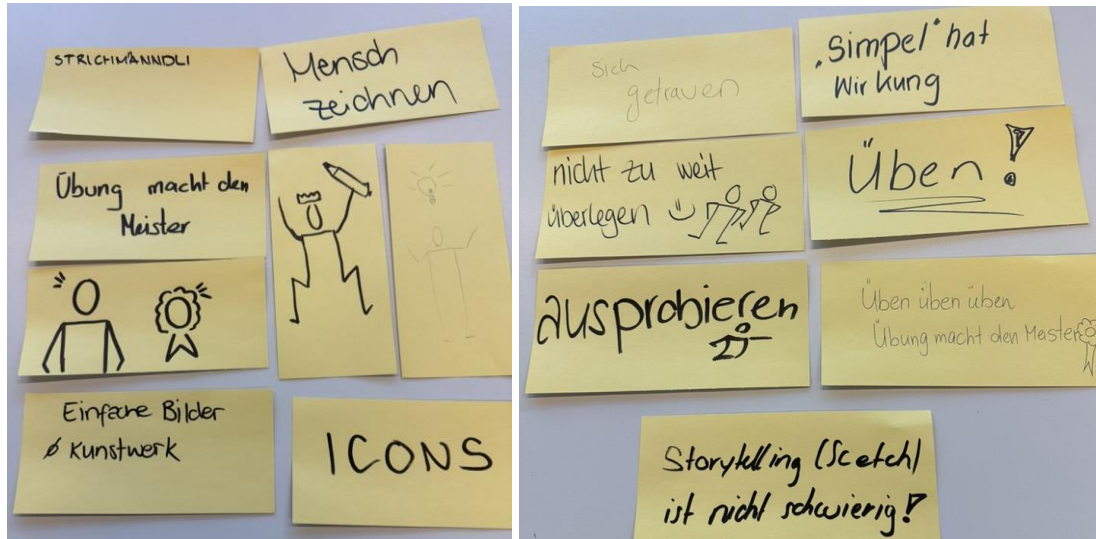 STRICHMÄNNDLI
Mensch
zeichnen
Übung macht den
Meister
Einfache Bilder
∅ Kunstwerk
ICONS
Sich
getrauen
"Simpel" hat
Wirkung
nicht zu weit
überlegen
Üben!
ausprobieren
Üben üben üben
Übung macht den Meister
Storytelling (Scetch)
ist nicht schwierig!